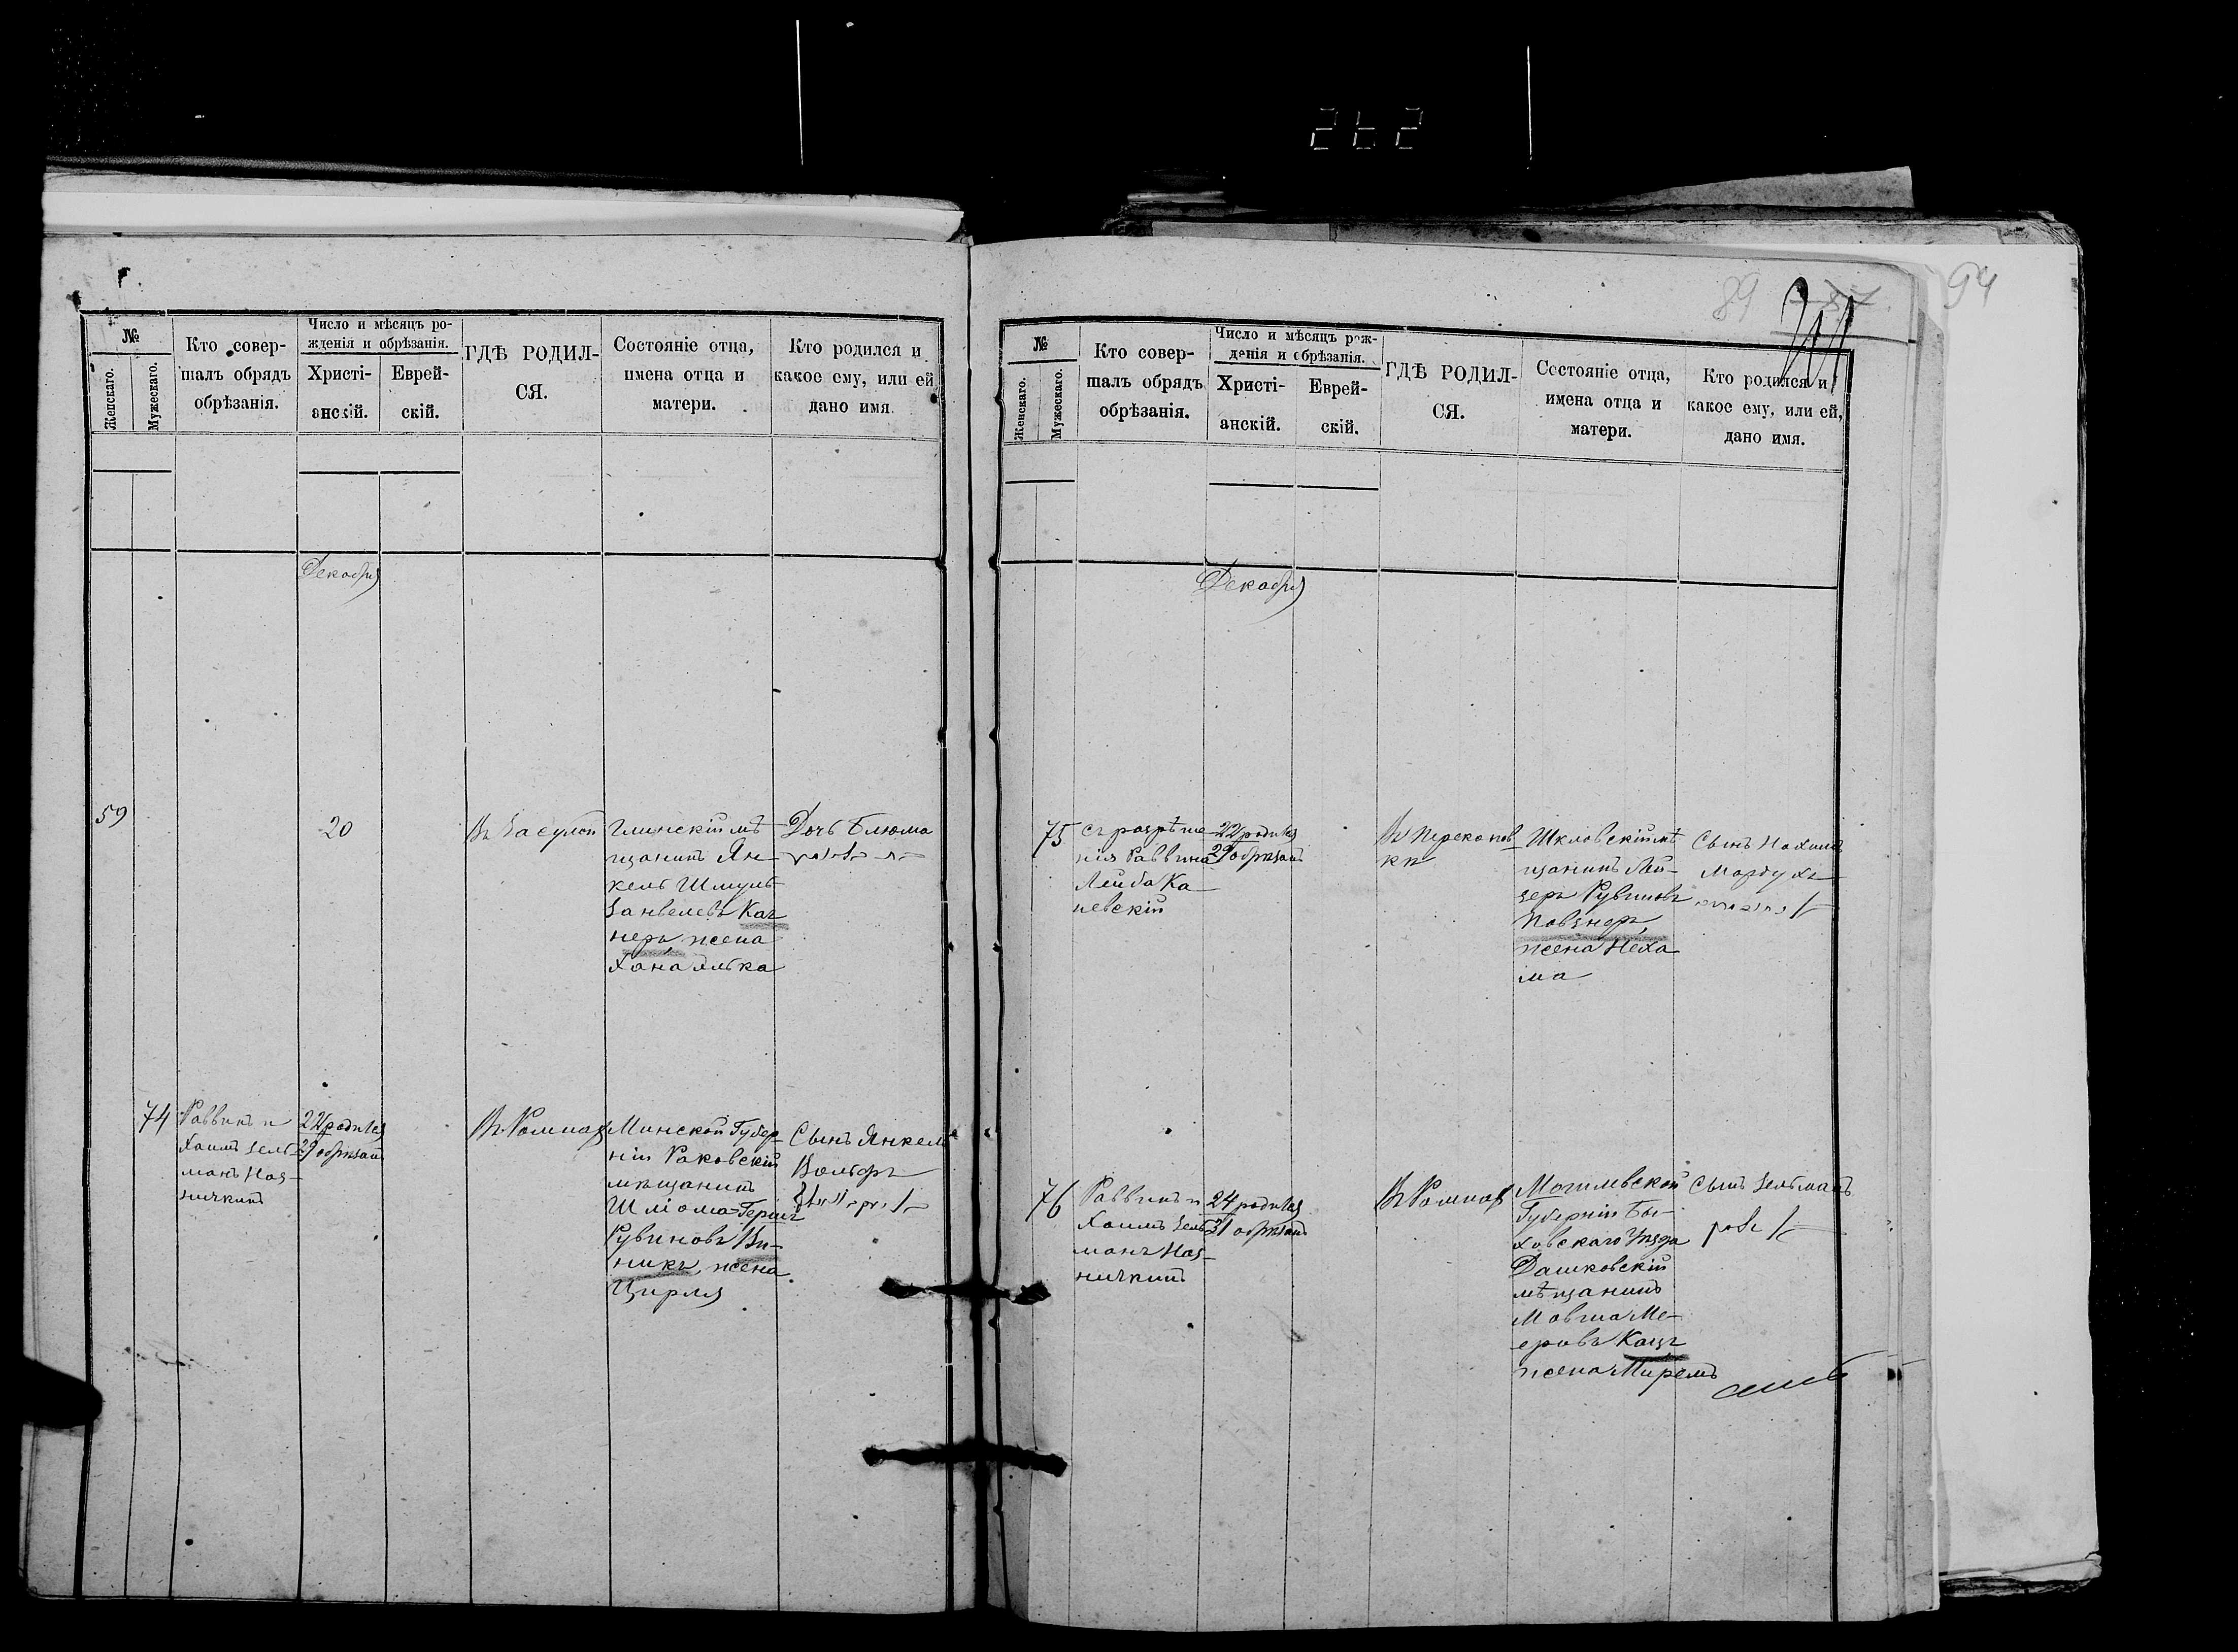 262
№
Женскаго.
Мужескаго.
Кто совер-
шалъ обрядъ
обрѣзанія.
Число и мѣсяцъ ро-
жденія и обрѣзанія.
Христі-
анскій.
Еврей-
скій.
ГДѢ РОДИЛ-
СЯ.
Состояніе отца,
имена отца и
матери.
Кто родился и
какое ему, или ей
дано имя.
Декабря
59
20
Въ Засульи
Глинскій мѣ
щанинъ Ян-
кель Шмуль
Занвелевъ Кац
неръ, жена
Хана Элька
Дочь Блюма
74
Раввинъ и
Хаимъ Зель-
манъ Ноз-
ничкинъ
22 родился
29 обрѣзанъ
Въ Ромнахъ
Минской Губер
ніи Раковскій
мѣщанинъ
Шліома-Герцъ
Рувиновъ Ви-
никъ, жена
Цирля
Сынъ Янкель
Вольфъ
89
87
94
№
Женскаго.
Мужескаго.
Кто совер-
шалъ обрядъ
обрѣзанія.
Число и мѣсяцъ рож-
денія и обрѣзанія.
Христі-
анскій.
Еврей-
скій.
ГДѢ РОДИЛ-
СЯ.
Состояніе отца,
имена отца и
матери.
Кто родился и
какое ему, или ей,
дано имя.
Декабря
75
съ разрѣше
нія Раввина
Лейба Ка-
невскій
22 родился
29 обрѣзанъ
Въ Перекопов
ки
Шкловскій мѣ
щанинъ Лей-
зеръ Рувиновъ
Повзнеръ,
жена Неха
ма
Сынъ Нохимъ
Мордухъ
76
Раввинъ и
Хаимъ Зель
манъ Ноз-
ничкинъ
24 родился
31 обрѣзанъ
Въ Ромнахъ
Могилевской
Губерніи Бы-
ховскаго Уѣзда
Дашковскій
мѣщанинъ
Мовша Ме-
еровъ Кацъ
жена Миремъ
Сынъ Зельманъ